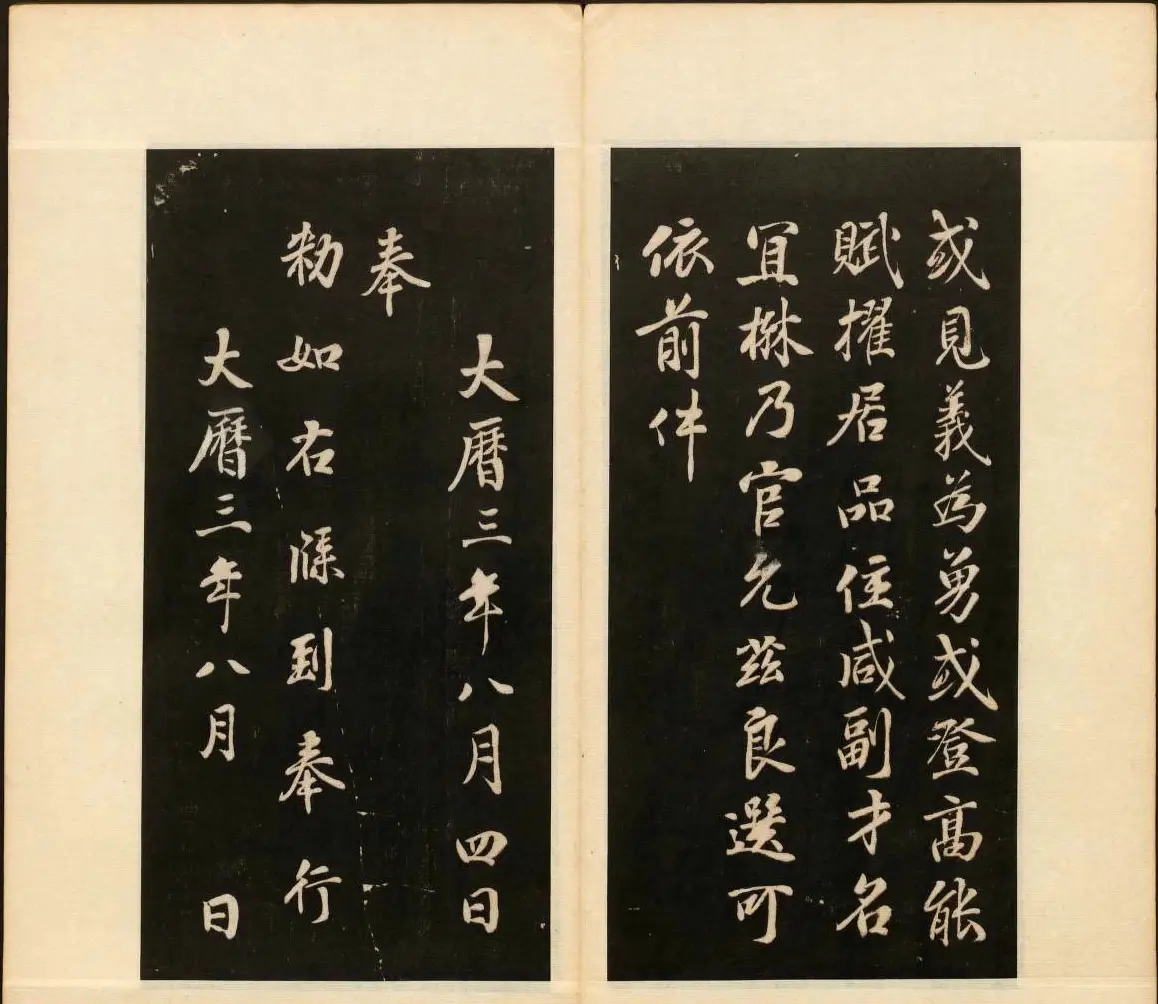 或見義為勇或登高能
賦擢居品位咸副才名
宜楙乃官允茲良選可
依前件
大曆三年八月四日
奉
勅如右牒到奉行
大曆三年八月　日